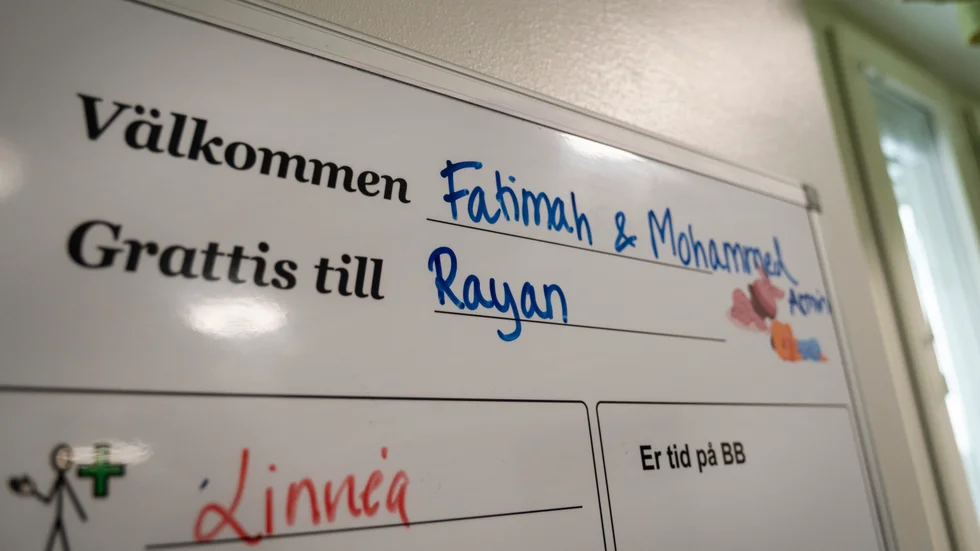 Välkommen Fatimah & Mohammed
Amin
Grattis till Rayan
Linnéa
Er tid på BB